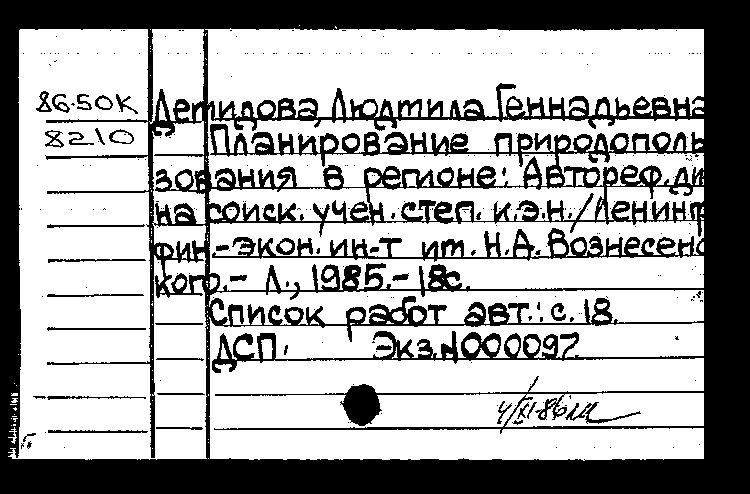 86-50К
8210
Демидова, Людмила Геннадьевна
Планирование природополь
зования в регионе: Автореф. ди
на соиск. учен. степ. к.э.н./Ленингр
фин.-экон. ин-т им. Н.А. Вознесенс
кого.- Л., 1985.-18с.
Список работ авт.: с. 18.
ДСП. Экз.N000097.
4/XI-86